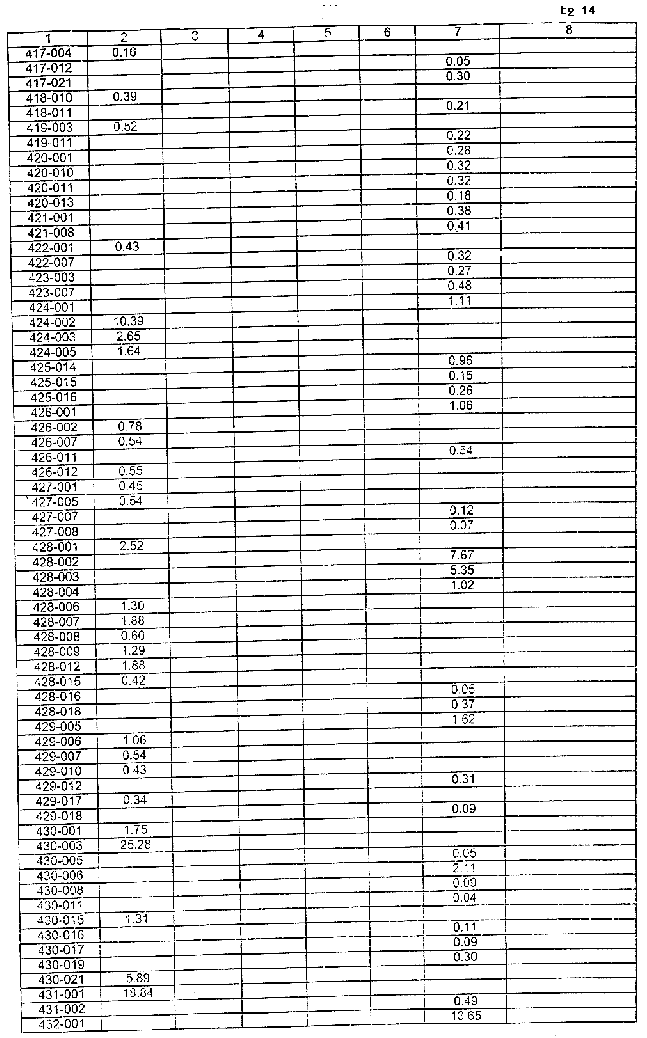 Eg 14
1 2 3 4 5 6 7 8
417-004 0.16
417-012 0.05
417-021 0.30
418-010 0.39
418-011 0.21
419-003 0.52
419-011 0.22
420-001 0.28
420-010 0.32
420-011 0.32
420-013 0.18
421-001 0.38
421-008 0.41
422-001 0.43
422-007 0.32
423-003 0.27
423-007 0.48
424-001 1.11
424-002 10.39
424-003 2.65
424-005 1.64
425-014 0.96
425-015 0.15
425-016 0.26
426-001 1.06
426-002 0.78
426-007 0.54
426-011 0.54
426-012 0.55
427-001 0.45
427-005 0.54
427-007 0.12
427-008 0.07
428-001 2.52
428-002 7.67
428-003 5.35
428-004 1.02
428-006 1.30
428-007 1.88
428-008 0.60
428-009 1.29
428-012 1.88
428-015 0.42
428-016
428-018 0.37
429-005 1.62
429-006 1.06
429-007 0.54
429-010 0.43
429-012 0.31
429-017 0.34
429-018 0.09
430-001 1.75
430-003 25.28
430-005 0.05
430-006 2.11
430-008 0.09
430-011 0.04
430-015 1.31
430-016 0.11
430-017 0.09
430-019 0.30
430-021 5.89
431-001
431-002 0.49
432-001